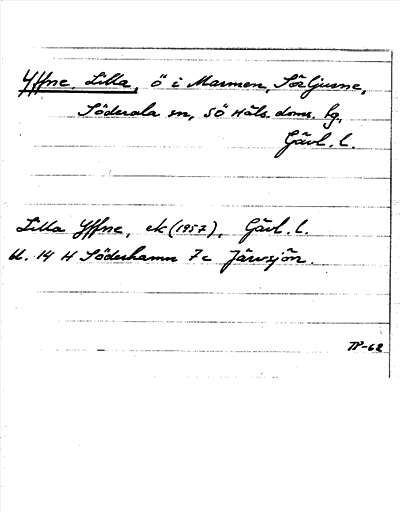 Yffne, Lilla, ö i Marmen, Sörljusne,
Söderala sn, SÖ Häls. doms. fg,
Gävl. l.
Lilla Yffne, ek (1957), Gävl. l.
bl. 14 H Söderhamn 7c Järvsjön.
TP-62